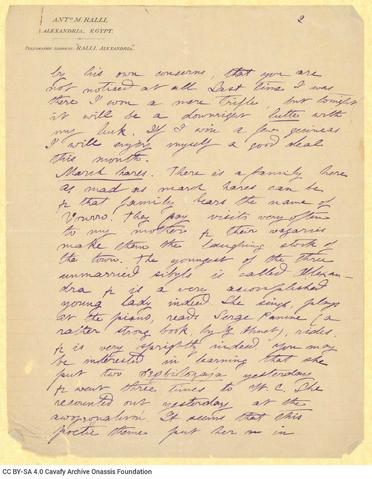 2
ANTº M. RALLI,
ALEXANDRIA, EGYPT.
TELEGRAPHIC ADDRESS: "RALLI, ALEXANDRIA".
by his own concerns, that you are
not noticed at all. Last time I was
there I won a mere trifle, but tonight
it will be a downright with
my luck. If I win a few guineas
I will enjoy myself a good deal
this month.
March hares. There is a family here
as mad as march hares can be
& that family bears the name of
They pay visits very often
to my mother & their vagaries
make them the laughing stock of
the town. The youngest of the three
unmarried sibyls is called Alexan-
dra & is a very accomplished
young lady indeed. She sings, plays
at the piano, reads Serge Panine (a
rather strong book, by G. Ohnet), rides,
& is very sprightly indeed. You may
be interested in learning that she
put two yesterday
& went three times to W. C. She
recounted out yesterday at the
It seems that this
poetic theme put her in in
CC BY-SA 4.0 Cavafy Archive Onassis Foundation